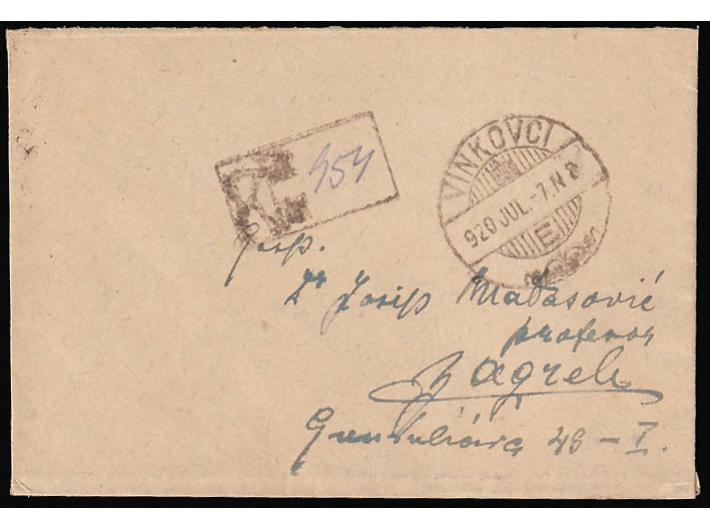 454
VINKOVCI
920 JUL.-7.N 8
E
Gosp.
Dr Josip Matasović
profesor
Zagreb
Gundulićeva 48 - I.